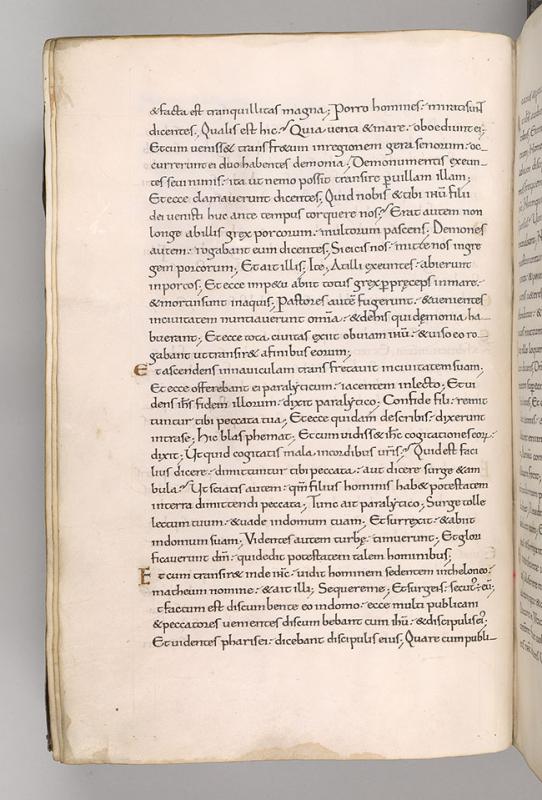 & facta est tranquillitas magna; Porro homines mirati sunt
dicentes; Qualis est hic? Quia venti & mare oboediunt ei;
Et cum veniss& trans fr&um in regionem gerasenorum oc-
currerunt ei duo habentes demonia; De monumentis exeun-
tes seui nimis ita ut nemo possit transire p uiam illam;
Et ecce clamauerunt dicentes; Quid nobis & tibi ihu fili
dei venisti huc ante tempus torquere nos? Erat autem non
longe ab illis grex porcorum multorum pascens; Demones
autem rogabant eum dicentes; Si eicis nos mitte nos in gre
gem porcorum; Et ait illis; Ite; At illi exeuntes abierunt
in porcos; Et ecce imp&u abiit totus grex p pręceps in mare
& mortui sunt in aquis; Pastores autē fugerunt & uenientes
in ciuitatem nuntiauerunt omnia & de his qui demonia ha
buerant; Et ecce tota ciuitas exiit obuiam ihu & uiso eo ro
gabant ut transir& a finibus eorum;
Et ascendens in nauiculam transfr&auit in ciuitatem suam,
Et ecce offerebant ei paralyticum iacentem in lecto; Et ui
dens ihs fidem illorum dixit paralytico; Confide fili remit
tuntur tibi peccata tua; Et ecce quidam de scribis dixerunt
intra se; Hic blasphemat; Et cum uidiss& ihc cogitationes eor
dixit; Ut quid cogitatis mala in cordibus uris? Quid est faci
lius dicere dimittuntur tibi peccata aut dicere surge & am
bula? Ut sciatis autem qm filius hominis hab& potestatem
in terra dimittendi peccata; Tunc ait paralytico; Surge tolle
lectum tuum & uade in domum tuam; Et surrexit & abiit
in domum suam; Videntes autem turbę timuerunt; Et glori
ficauerunt dm qui dedit potestatem talem hominibus;
Et cum transir& inde ihc uidit hominem sedentem in theloneo
matheum nomine & ait illi; Sequere me; Et surgens secut' ē eū;
t factum est discumbente eo in domo ecce multi publicani
& peccatores uenientes discumbebant cum ihu & discipulis ei';
Et uidentes pharisei dicebant discipulis eius; Quare cum publi-